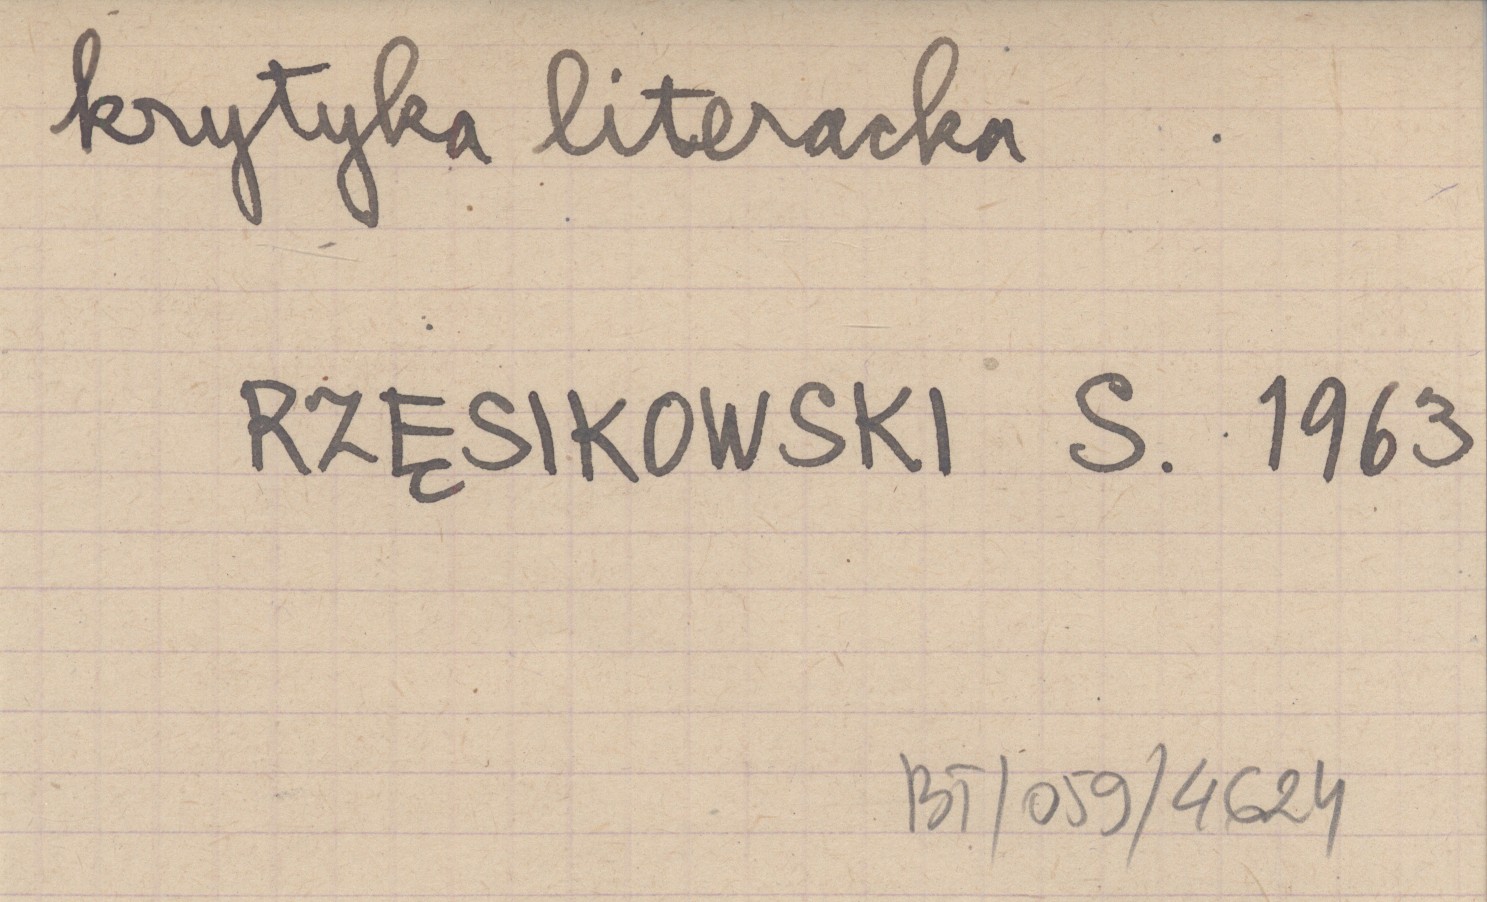 krytyka literacka
RZĘSIKOWSKI S. 1963
BT/059/4624